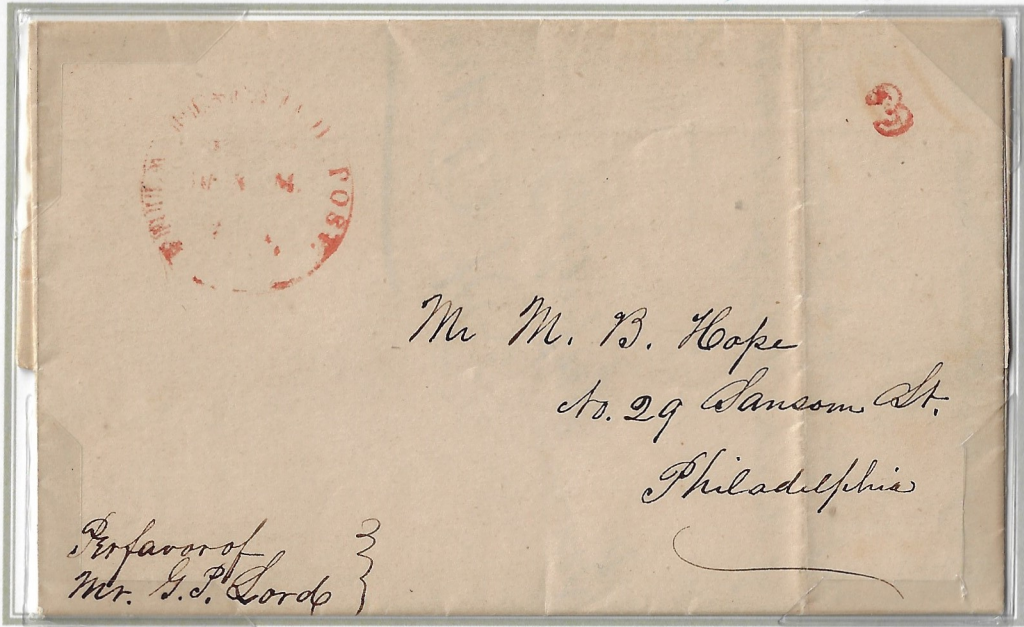 3
POST
Mr M. B. Hope
No. 29 Sansom St.
Philadelphia
Per favor of
Mr. G. P. Lord